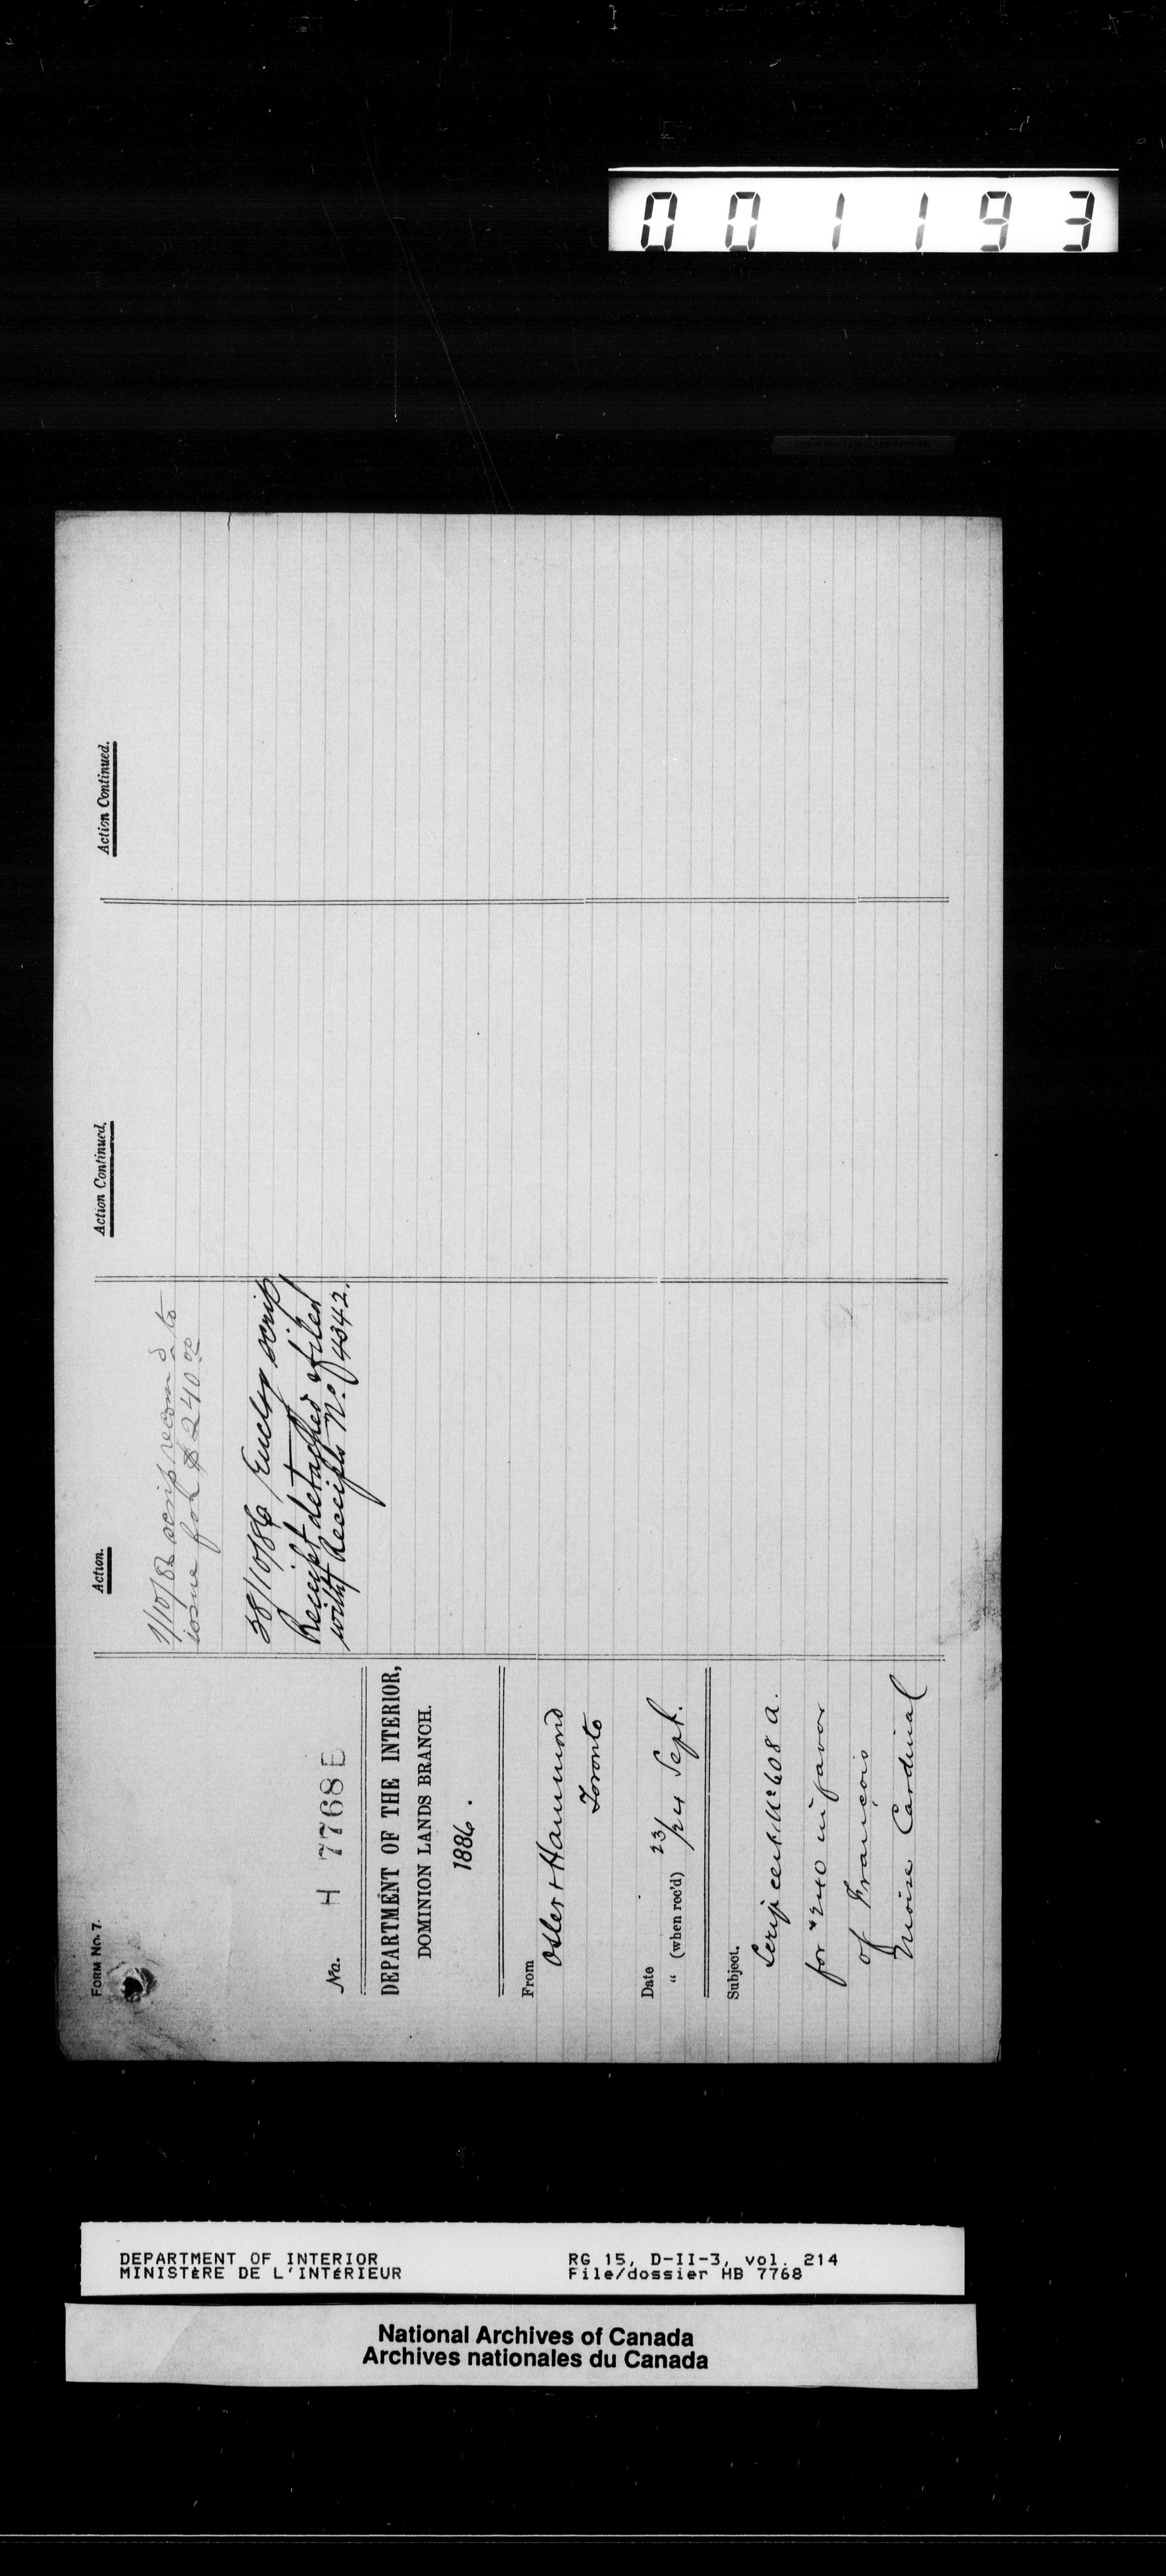 001193
FORM No. 7.
No. H 7768 E
DEPARTMENT OF THE INTERIOR,
DOMINION LANDS BRANCH.
1886.
From
Osler & Hammond
Toronto
Date 23
" (when rec'd) /24 Sept.
Subject.
Scrip cert. No 608 A.
for $240 in favor
of François
Moise Cardinal
Action.
1/10/86 scrip recom'd to
issue for $240.00
28/10/86 Enclg scrip
Receipt detached & filed
with Receipts No. 4342.
Action Continued.
Action Continued.
DEPARTMENT OF INTERIOR
MINISTÈRE DE L'INTÉRIEUR
RG 15, D-II-3, vol. 214
File/dossier HB 7768
National Archives of Canada
Archives nationales du Canada